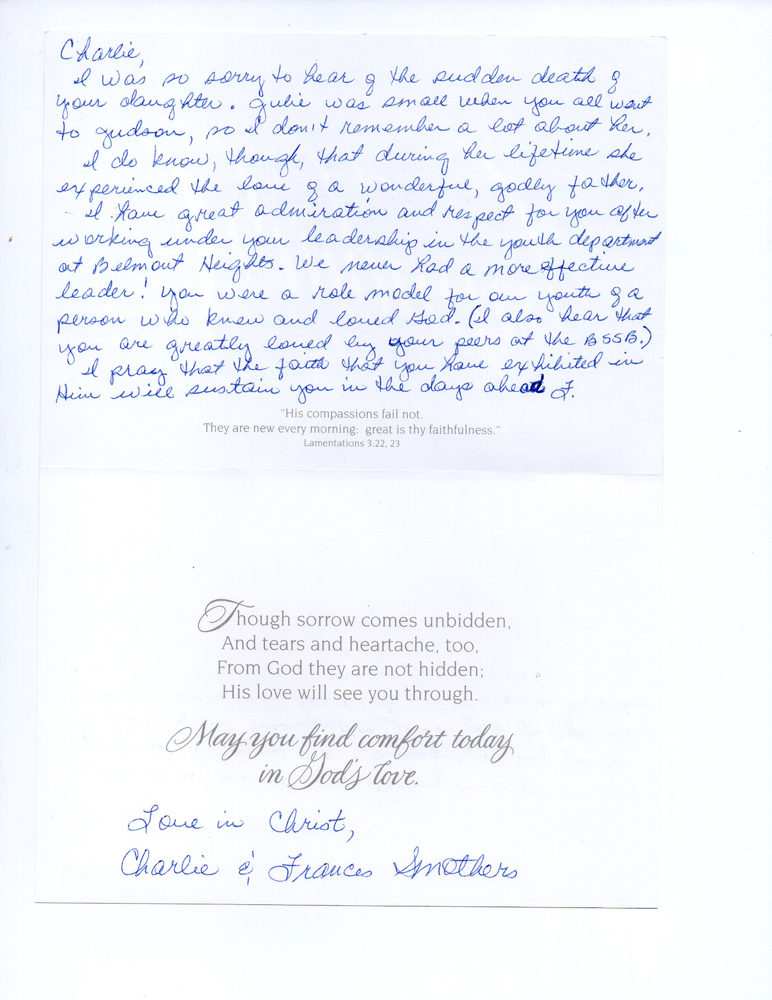 Charlie,
I was so sorry to hear of the sudden death of
your daughter. Julie was small when you all went
to Judson, so I don't remember a lot about her.
I do know, though, that during her lifetime she
experienced the love of a wonderful, godly father.
I have great admiration and respect for you after
working under your leadership in the youth department
at Belmont Heights. We never had a more effective
leader! You were a role model for our youth of a
person who knew and loved God. (I also hear that
you are greatly loved by your peers at the BSSB.)
I pray that the faith that you have exhibited in
Him will sustain you in the days ahead. F.
"His compassions fail not.
They are new every morning: great is thy faithfulness."
Lamentations 3:22, 23
Though sorrow comes unbidden,
And tears and heartache, too,
From God they are not hidden;
His love will see you through.
May you find comfort today
in God's love.
Love in Christ,
Charlie & Frances Smothers